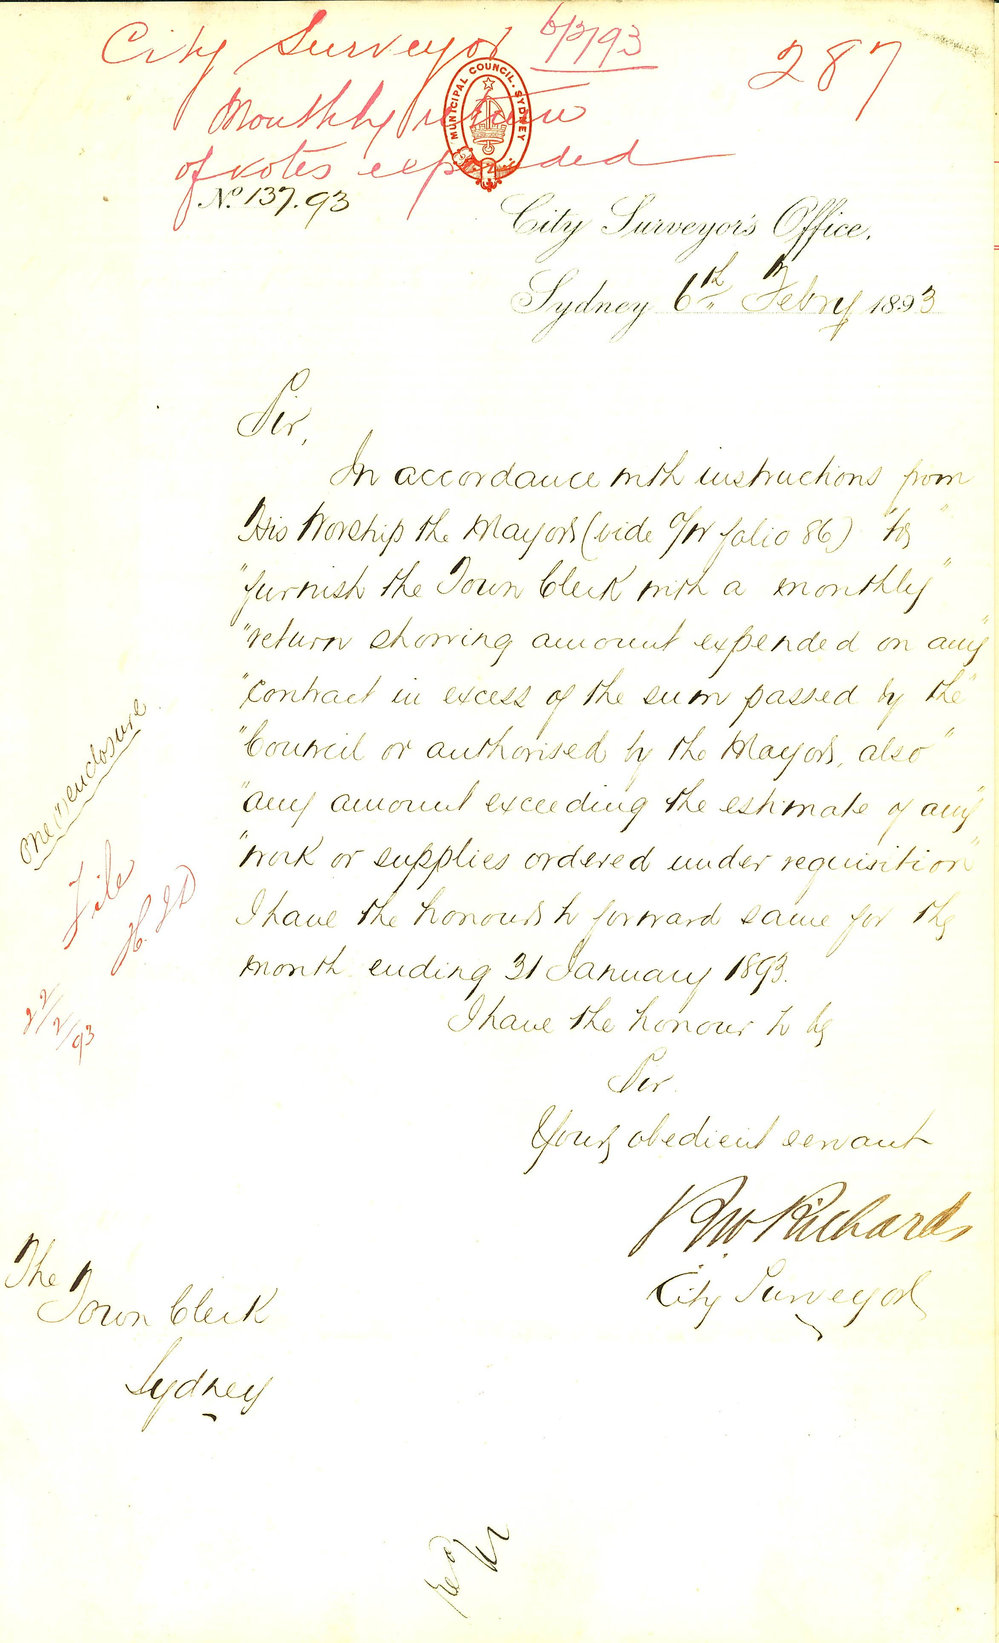 City Surveyor 6/2/93
287
Monthly return
of votes expended
MUNICIPAL COUNCIL. SYDNEY
No. 137.93
City Surveyor's Office.
Sydney 6th Febry 1893
Sir,
In accordance with instructions from
His Worship the Mayor (vide folio 86) "to"
"furnish the Town Clerk with a monthly"
"return showing amount expended on any"
"contract in excess of the sum passed by the"
"Council or authorised by the Mayor, also"
"any amount exceeding the estimate of any"
"work or supplies ordered under requisition"
I have the honour to forward same for the
month ending 31 January 1893.
I have the honour to be
Sir.
Your obedient servant
RW Richards
City Surveyor
The
Town Clerk
Sydney
One enclosure
File
22/2/93